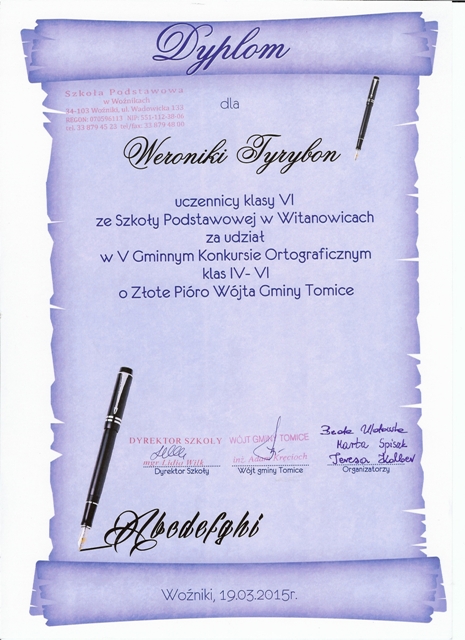 Dyplom
Szkoła Podstawowa
w Woźnikach
34-103 Woźniki, ul. Wadowicka 135
dla
Weroniki Tyrybon
uczennicy klasy VI
ze Szkoły Podstawowej w Witanowicach
za udział
w V Gminnym Konkursie Ortograficznym
klas IV- VI
o Złote Pióro Wójta Gminy Tomice
DYREKTOR SZKOŁY
mgr Lidia Wilk
Dyrektor Szkoły
WÓJT GMINY TOMICE
inż. Adam Kręcioch
Wójt gminy Tomice
Beata
Marta Spisak
Teresa
Organizatorzy
Abcdefghi
Woźniki, 19.03.2015r.